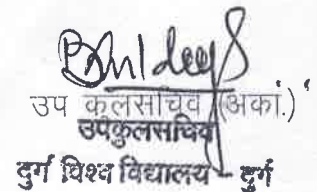 उप कुलसचिव (अकां.)
उपकुलसचिव
दुर्ग विश्व विद्यालय - दुर्ग